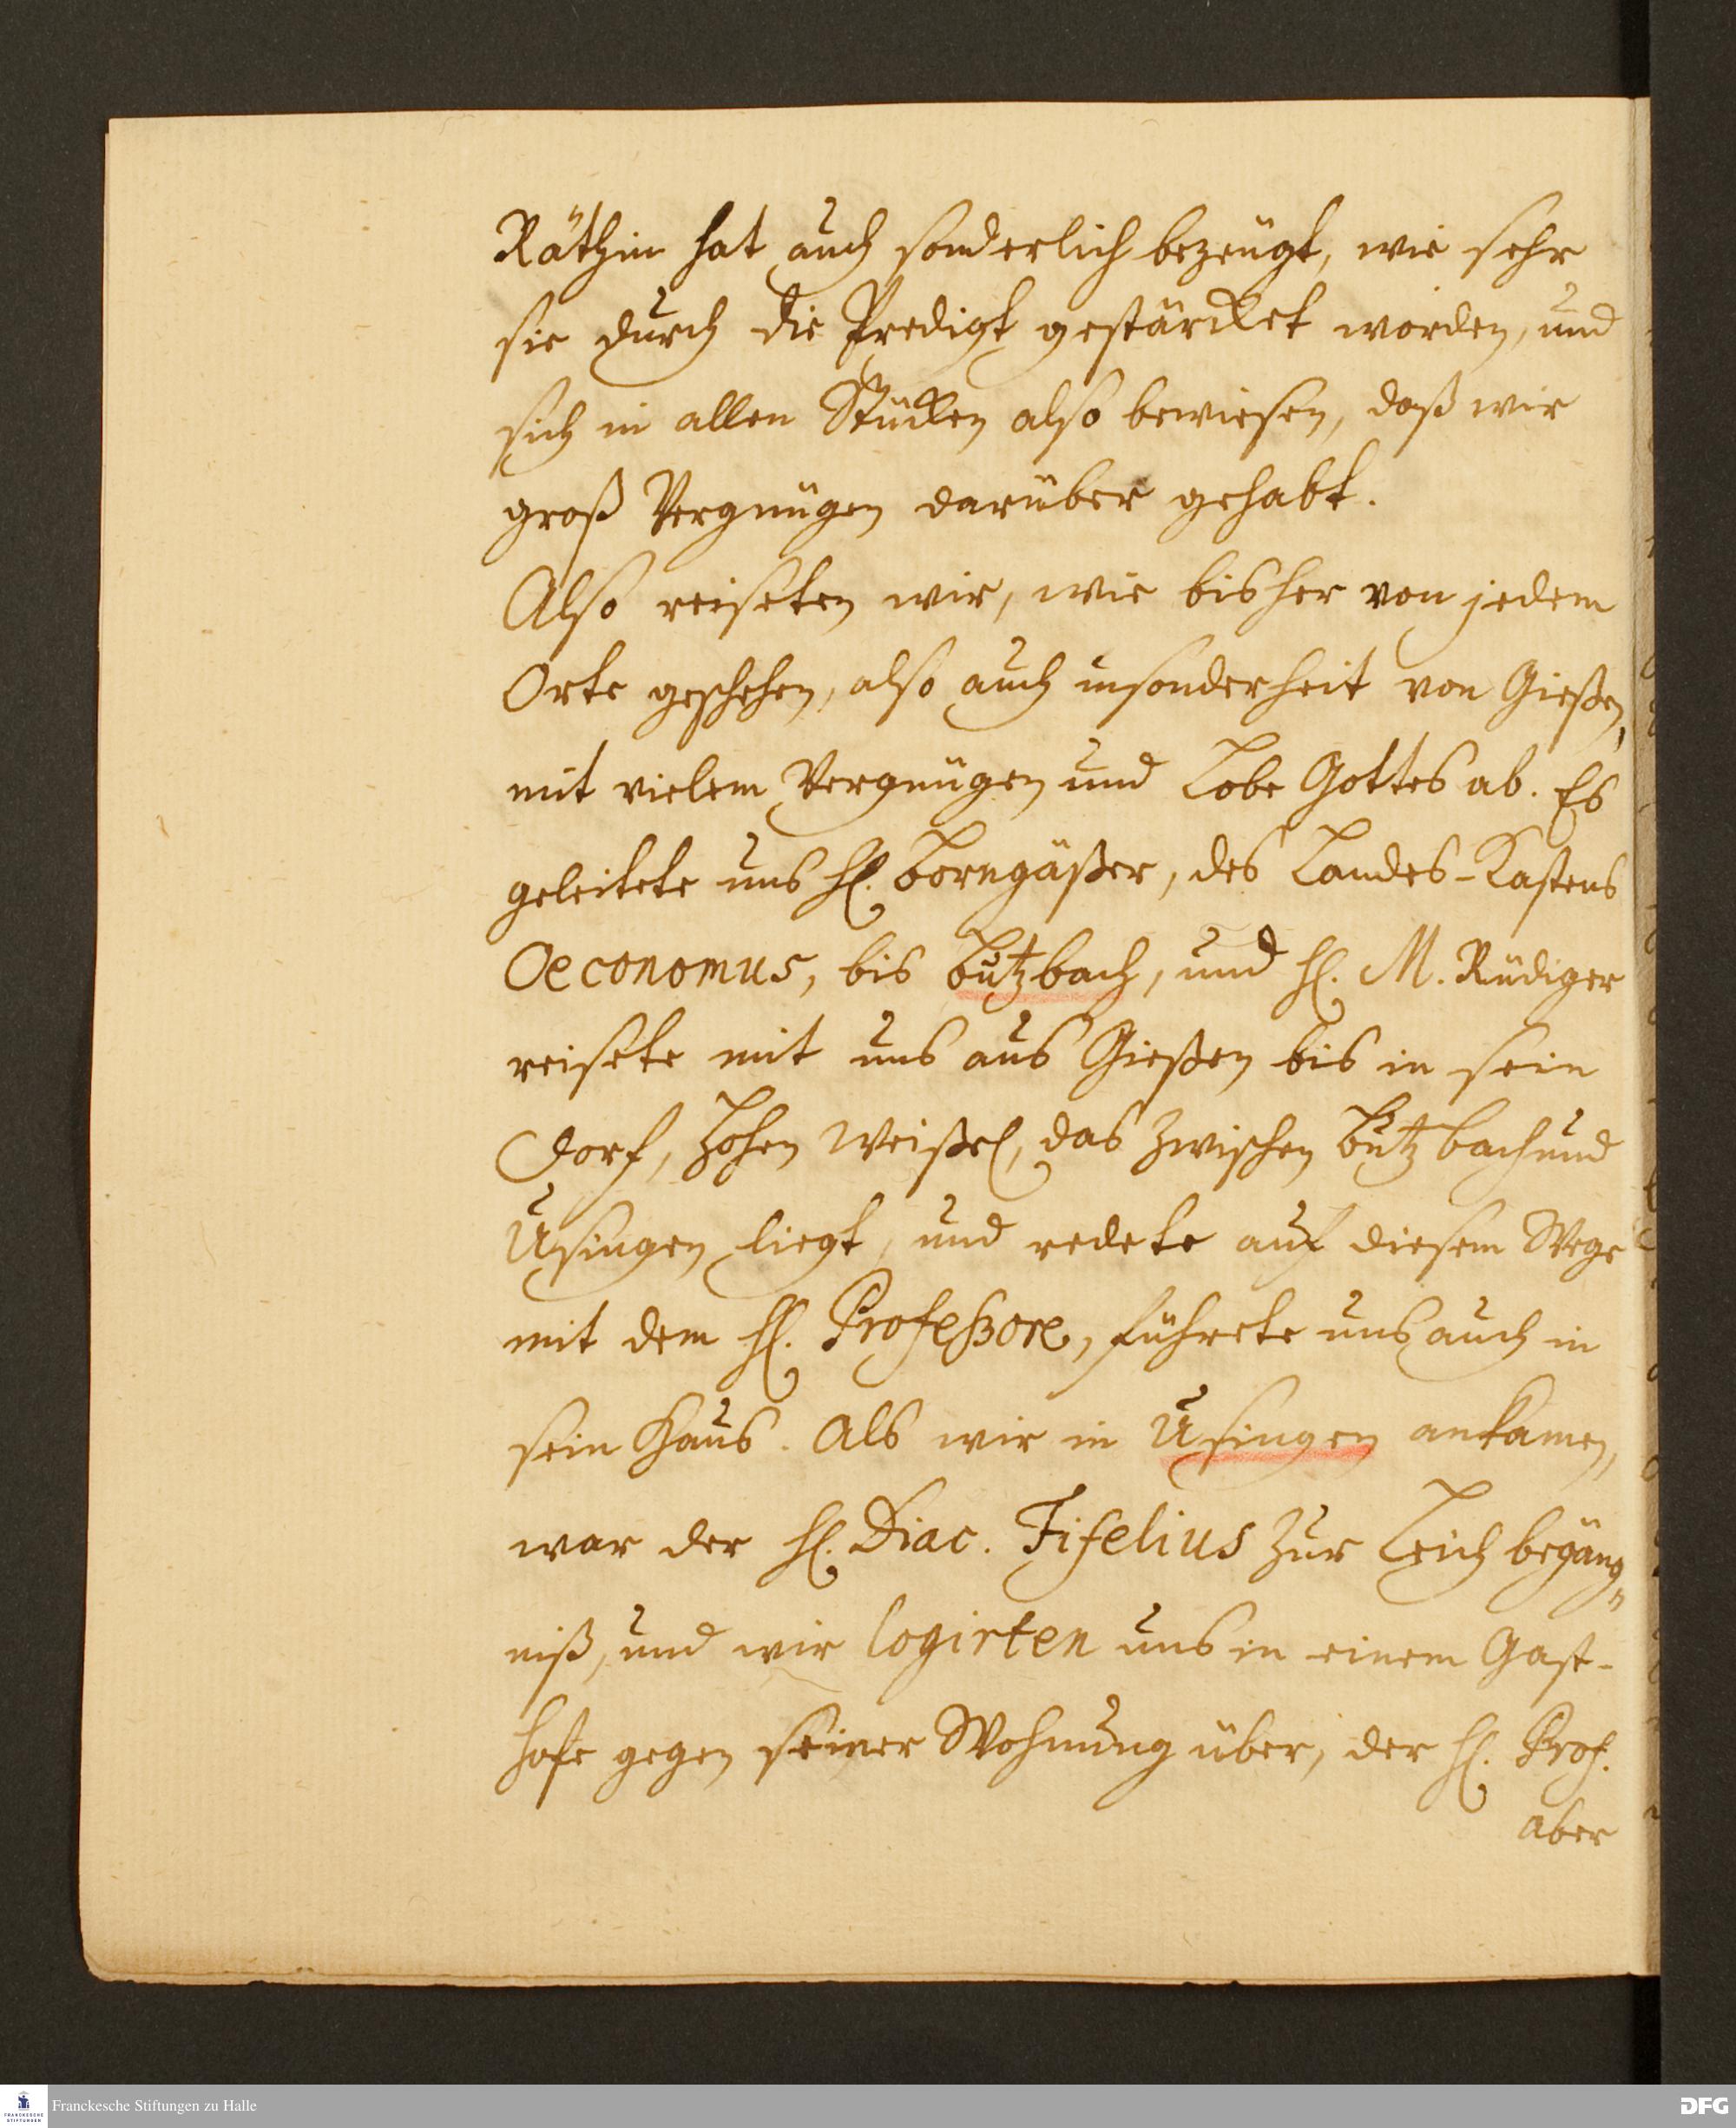 Räthin hat auch sonderlich bezeugt, wie sehr
sie durch die Predigt gestärcket worden, und
sich in allen Stücken also bewiesen, daß wir
groß Vergnügen darüber gehabt.
Also reiseten wir, wie bisher von jedem
Orte geschehen, also auch insonderheit von Gießen,
mit vielem Vergnügen und Lobe Gottes ab. Es
geleitete uns H. Borngäßer, des Landes-Kastens
Oeconomus, bis Butzbach, und H. M. Rüdiger
reisete mit uns aus Gießen bis in sein
Dorf, Hohen Weißel, das zwischen Butzbach und
Usingen liegt, und redete auf diesem Wege
mit dem H. Profeßore, führete uns auch in
sein Haus. Als wir in Usingen ankamen,
war der H. Diac. Fifelius zur Leich begäng„
niß, und wir logirten uns in einem Gast-
hofe gegen seiner Wohnung über, der H. Prof.
aber
Franckesche Stiftungen zu Halle
FRANCKESCHE STIFTUNGEN
DFG